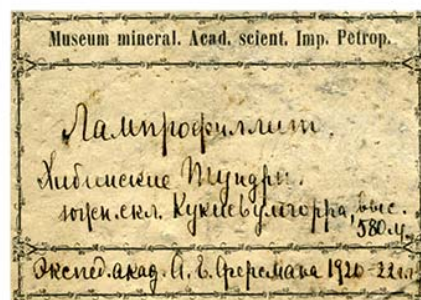 Museum mineral. Acad. scient. Imp. Petrop.
Лампрофиллит.
Хибинские Тундры.
южн. скл. Кукисвумчорра, выс.
580 м.
Экспед. акад. А. Е. Ферсмана 1920-22 гг.